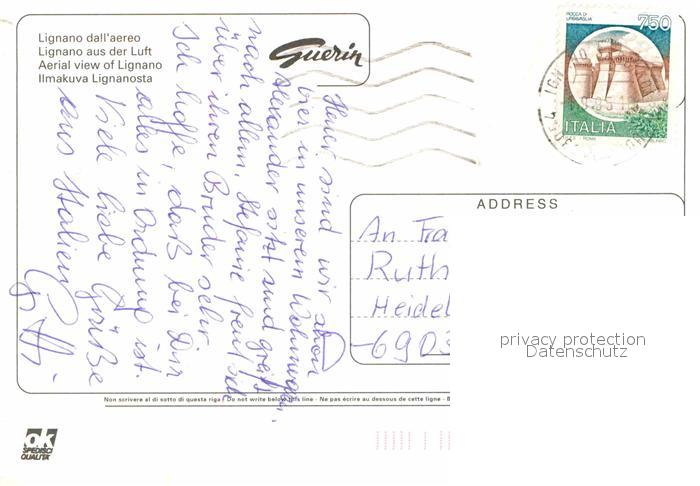 Lignano dall'aereo
Lignano aus der Luft
Aerial view of Lignano
Ilmakuva Lignanosta
Guerin
ROCCA DI
URBISAGLIA
750
ITALIA
Heuer sind wir schon
hier in unserem Wohnwagen.
Alexander sitzt und greift
nach allem, Stefanie freut sich
über ihren Bruder sehr.
Ich hoffe, daß bei Dir
alles in Ordnung ist.
Viele liebe Grüße
aus Italien
ADDRESS
An Fra
Ruth
Heidel
-6903
privacy protection
Datenschutz
Non scrivere al di sotto di questa riga / Do not write below this line - Ne pas écrire au dessous de cette ligne - B
ok
SPEDISCI
QUALITÀ